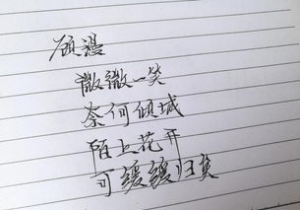 顾漫
微微一笑
奈何倾城
陌上花开
可缓缓归矣